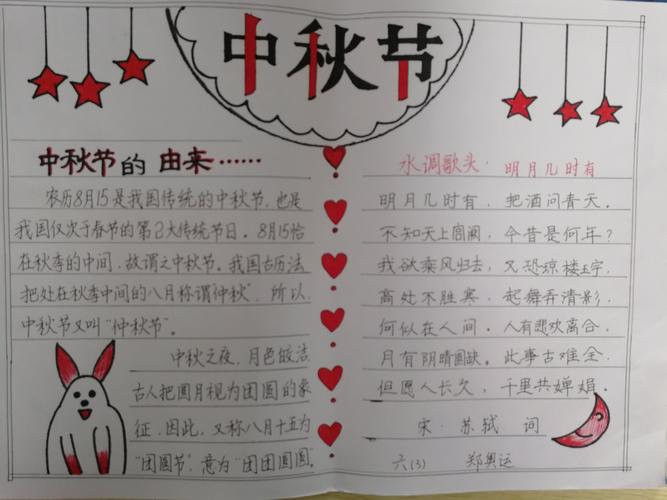 中秋节
中秋节的由来……
农历8月15是我国传统的中秋节，也是
我国仅次于春节的第2大传统节日。8月15恰
在秋季的中间，故谓之中秋节。我国古历法
把处在秋季中间的八月称谓"仲秋"，所以
中秋节又叫"仲秋节"。
中秋之夜，月色皎洁
古人把圆月视为团圆的象
征，因此，又称八月十五为
"团圆节"，意为"团团圆圆。
水调歌头·明月几时有
明月几时有，把酒问青天。
不知天上宫阙，今昔是何年？
我欲乘风归去，又恐琼楼玉宇，
高处不胜寒，起舞弄清影，
何似在人间，人有悲欢离合，
月有阴晴圆缺。此事古难全，
但愿人长久，千里共婵娟。
宋·苏轼 词
六(3) 郑奥运